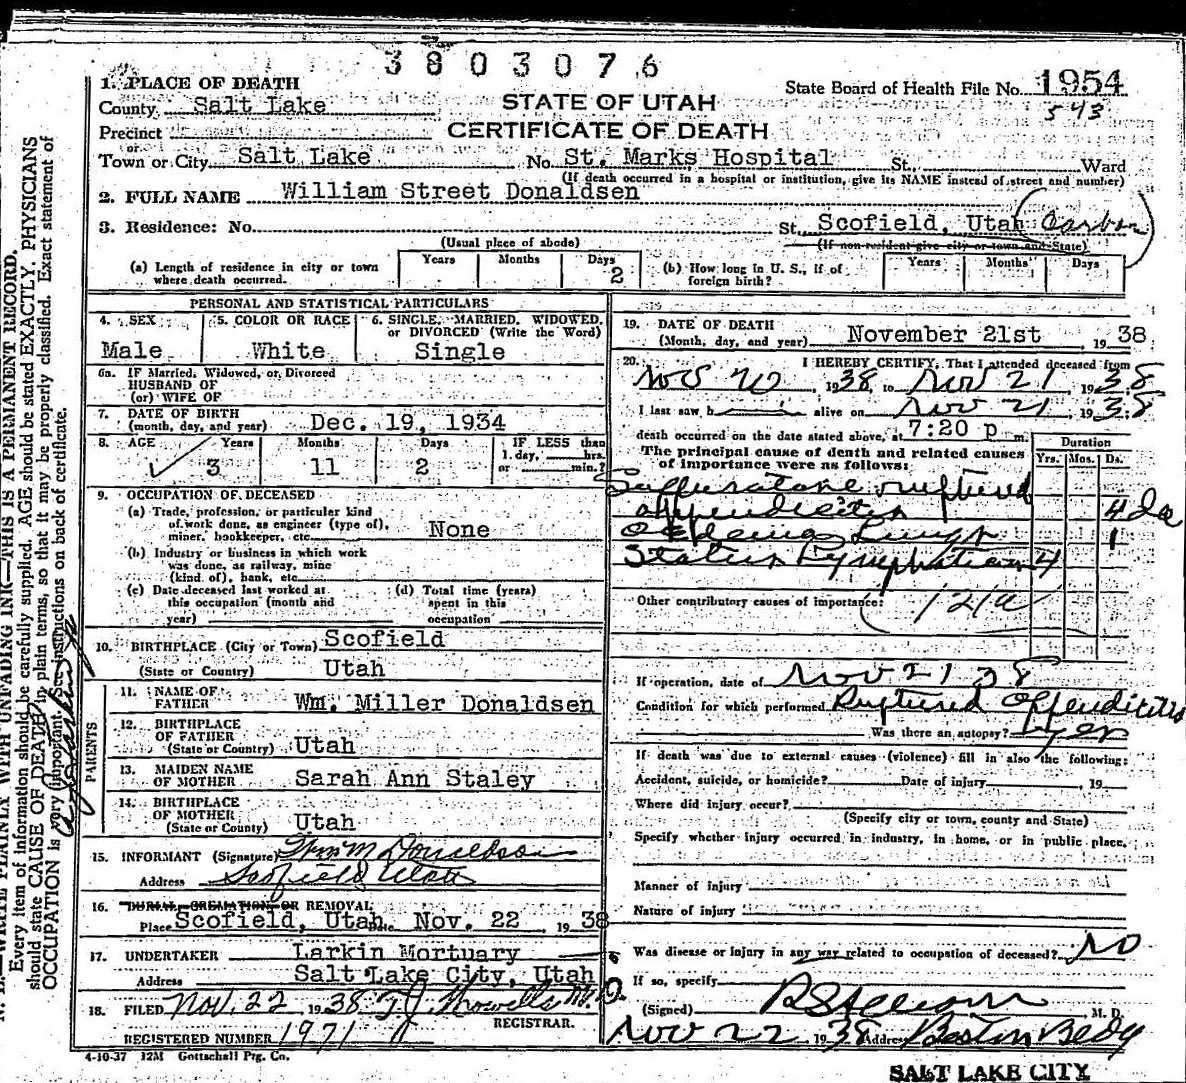 3803076
1. PLACE OF DEATH
State Board of Health File No. 1954
543
County Salt Lake
STATE OF UTAH
Precinct
CERTIFICATE OF DEATH
or
Town or City Salt Lake No. St. Marks Hospital St., Ward
(If death occurred in a hospital or institution, give its NAME instead of street and number)
2. FULL NAME William Street Donaldsen
3. Residence: No. St. Scofield, Utah (Carbon)
(Usual place of abode) (If non-resident give city or town and State)
(a) Length of residence in city or town where death occurred. Years Months Days 2
(b) How long in U. S., if of foreign birth? Years Months Days
PERSONAL AND STATISTICAL PARTICULARS
4. SEX Male
5. COLOR OR RACE White
6. SINGLE, MARRIED, WIDOWED, or DIVORCED (Write the Word) Single
6a. IF Married, Widowed, or Divorced
HUSBAND OF
(or) WIFE OF
7. DATE OF BIRTH
(month, day, and year) Dec. 19, 1934
8. AGE Years 3 Months 11 Days 2
IF LESS than
1 day, hrs.
or min.?
9. OCCUPATION OF DECEASED
(a) Trade, profession, or particular kind
of work done, as engineer (type of),
miner, bookkeeper, etc. None
(b) Industry or business in which work
was done, as railway, mine
(kind of), bank, etc.
(c) Date deceased last worked at
this occupation (month and
year)
(d) Total time (years)
spent in this
occupation
10. BIRTHPLACE (City or Town) Scofield
(State or Country) Utah
PARENTS
11. NAME OF
FATHER Wm. Miller Donaldsen
12. BIRTHPLACE
OF FATHER
(State or County) Utah
13. MAIDEN NAME
OF MOTHER Sarah Ann Staley
14. BIRTHPLACE
OF MOTHER
(State or County) Utah
15. INFORMANT (Signature) Wm M Donaldson
Address Scofield Utah
16. BURIAL, CREMATION OR REMOVAL
Place Scofield, Utah Date Nov. 22 1938
17. UNDERTAKER Larkin Mortuary
Address Salt Lake City, Utah
18. FILED Nov. 22 1938 T.J. Howells M.D.
REGISTRAR.
REGISTERED NUMBER 1971
4-10-37 12M Gottschall Ptg. Co.
19. DATE OF DEATH
(Month, day, and year) November 21st 1938
20. I HEREBY CERTIFY, That I attended deceased from
Nov 1938 to Nov 21 1938
I last saw h alive on Nov 21 1938
death occurred on the date stated above, at 7:20 p m.
The principal cause of death and related causes
of importance were as follows:
Duration
Yrs. Mos. Ds.
Suppurative ruptured
appendicitis 4 da
Oedema Lungs 1
Status Lymphaticus 4
Other contributory causes of importance: 121a
If operation, date of Nov 21 38
Condition for which performed Ruptured Appendicitis
Was there an autopsy? yes
If death was due to external causes (violence) fill in also the following:
Accident, suicide, or homicide? Date of injury 19
Where did injury occur?
(Specify city or town, county and State)
Specify whether injury occurred in industry, in home, or in public place.
Manner of injury
Nature of injury
Was disease or injury in any way related to occupation of deceased? No
If so, specify
(Signed) M. D.
Nov 22 1938 Address Boston Bldg
SALT LAKE CITY
WRITE PLAINLY WITH UNFADING INK—THIS IS A PERMANENT RECORD.
Every item of information should be carefully supplied. AGE should be stated EXACTLY. PHYSICIANS
should state CAUSE OF DEATH in plain terms, so that it may be properly classified. Exact statement of
OCCUPATION is very important. See instructions on back of certificate.